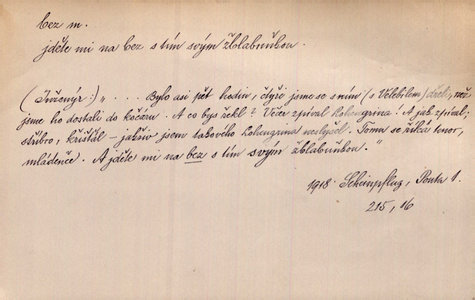 bez m.
jděte mi na bez s tím svým žblabuňkou.
(Inženýr:) „.... Bylo asi pět hodin, čtyři jsme se s ním (s Velebilem) dřeli, než
jsme ho dostali do kočáru. A co bys řekl? Vice zpíval Lohengrina! A jak zpíval;
stříbro, křišťál – jakživ jsem takového Lohengrina neslyšel. Tomu se říká tenor,
mládenče. A jděte mi na bez s tím svým žblabuňkou."
1918 Scheinpflug, Pouta 1.
215, 16